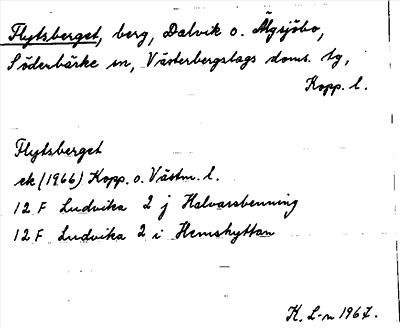 Flytsberget, berg, Dalvik o. Älgsjöbo,
Söderbärke sn, Västerbergslags doms. tg,
Kopp. l.
Flytsberget
ek (1966) Kopp. o. Västm. l.
12 F Ludvika 2 j Halvarsbenning
12 F Ludvika 2 i Hemshyttan
K. L-n 1967.